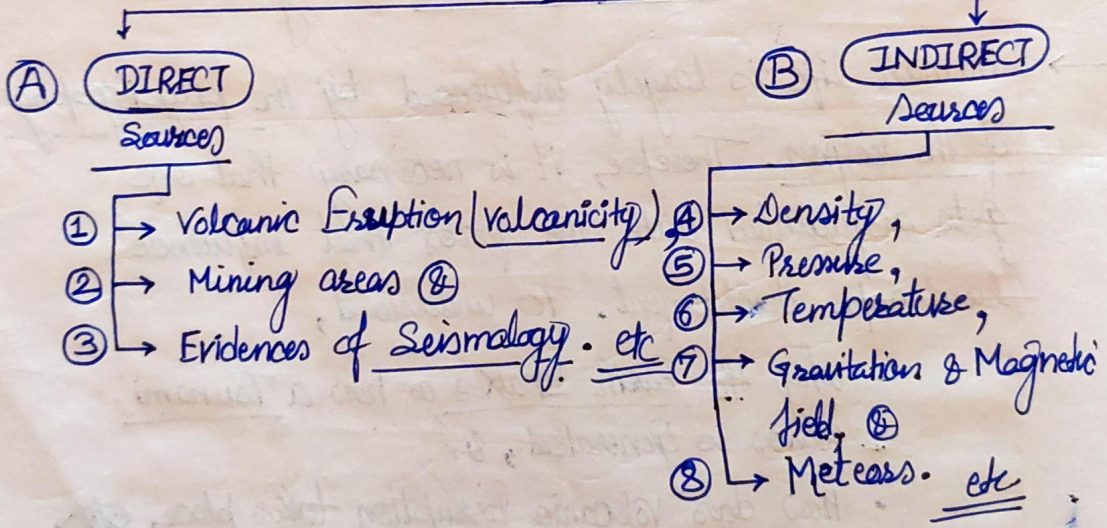 Ⓐ DIRECT
Sources
① → Volcanic Eruption (volcanicity),
② → Mining areas &
③ → Evidences of Seismology. etc
Ⓑ INDIRECT
Sources
④ → Density,
⑤ → Pressure,
⑥ → Temperature,
⑦ → Gravitation & Magnetic
field, &
⑧ → Meteors. etc